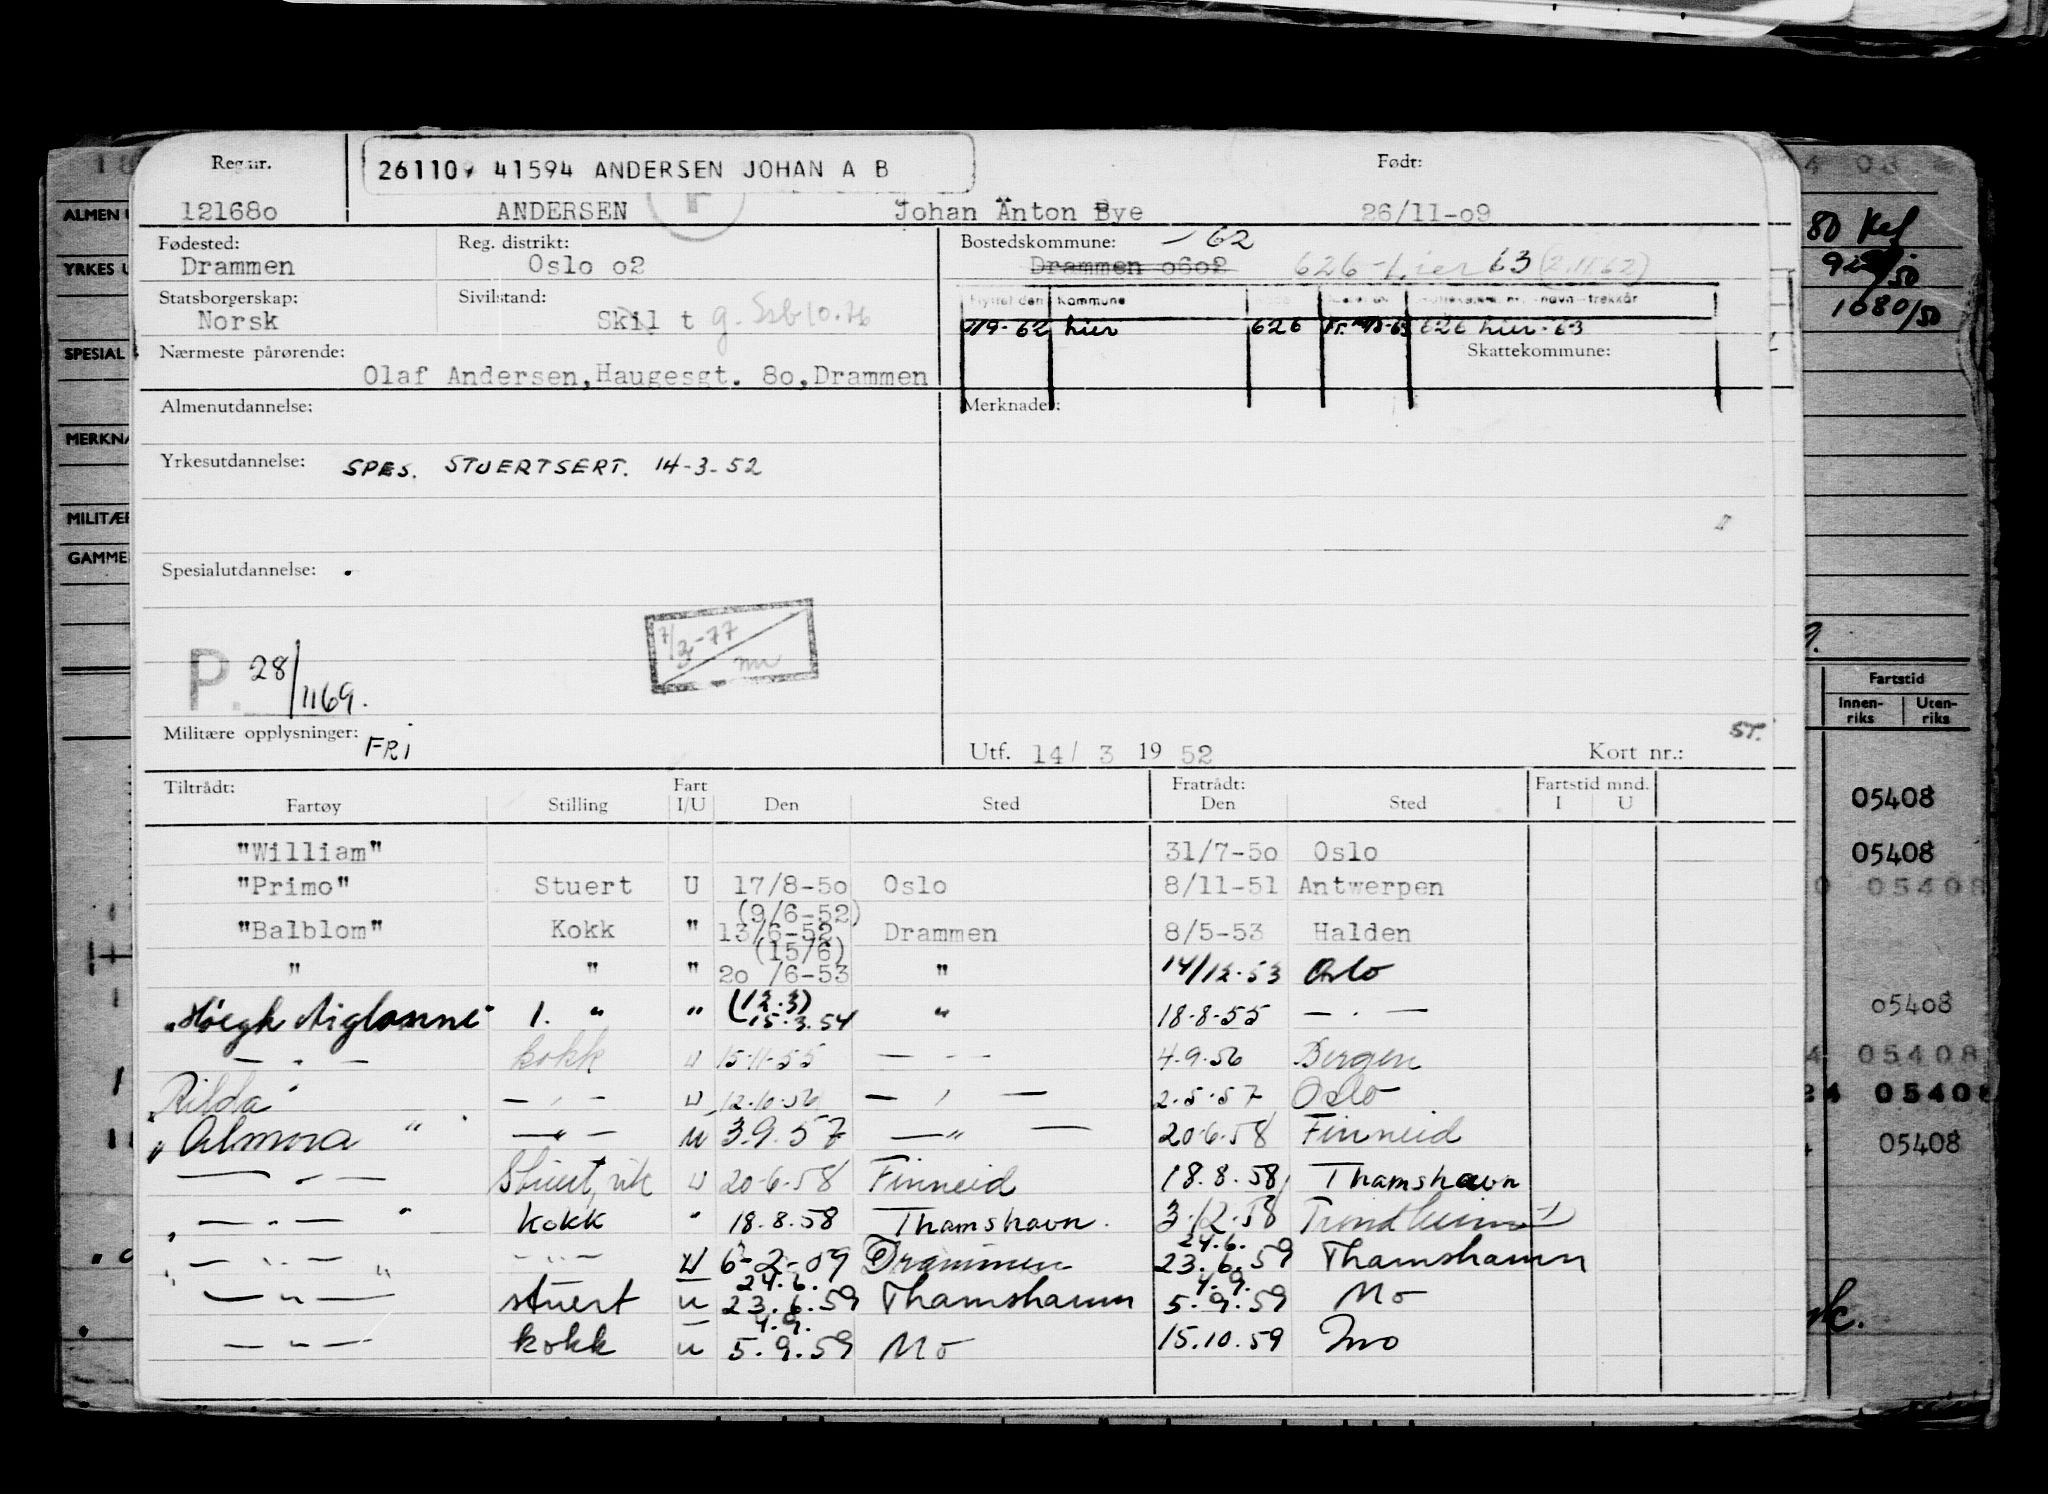 Reg.nr. 261109 41594 ANDERSEN JOHAN A B Født:
121680 ANDERSEN Johan Anton Bye 26/11-09
F
Fødested: Reg. distrikt: Bostedskommune: - 62
Drammen Oslo 02 Drammen 0602 626 - Lier 63 (2.11.62)
Statsborgerskap: Sivilstand: Flyttet den Kommune
Norsk Skil t g. Ssb 10.76 1/9-62 Lier 626 626 Lier-63
Nærmeste pårørende: Skattekommune:
Olaf Andersen, Haugesgt. 80, Drammen
Almenutdannelse: Merknader:
Yrkesutdannelse: SPES. STUERTSERT. 14-3-52
Spesialutdannelse:
7/3-77
P. 28/1169.
Militære opplysninger: FRI ST.
Utf. 14/ 3 19 52 Kort nr.:
Tiltrådt: Fart Fratrådt: Fartstid mnd.
Fartøy Stilling I/U Den Sted Den Sted I U
"William" 31/7-50 Oslo
"Primo" Stuert U 17/8-50 Oslo 8/11-51 Antwerpen
(9/6-52)
"Balblom" Kokk " 13/6-52 Drammen 8/5-53 Halden
(15/6)
" " " 20 /6-53 " 14/12-53 Oslo
(12.3)
"Höegh Aiglonne" 1. " " 15.3.54 " 18-8-55 — . —
— " — kokk U 15-11-55 — " — 4.9.56 Bergen
"Rilda" — " — U 12.10.56 — " — 2.5.57 Oslo
"Almora" — " — U 3.9.57 — " — 20.6.58 Finneid
— " — Stuert, vik U 20-6-58 Finneid 18.8.58 Thamshavn
" — " — " kokk " 18.8.58 Thamshavn. 3.12.58 Trondheim
24.6.
" — " — " — " — U 6-2-09 Drammen 23.6.59 Thamshamn
24.6. 4.9.
— " — stuert U 23.6.59 Thamshamn 5.9.59 Mo
4.9.
— " — kokk U 5.9.59 Mo 15.10.59 Mo
ALMEN
YRKES U
SPESIAL
MERKNA
MILITÆR
GAMME
1080/50
Fartstid
Innen-riks Uten-riks
05408
05408
05408
05408
05408
05408
05408